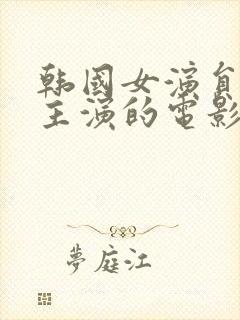 韩國女演員
主演的電影
夢庭江